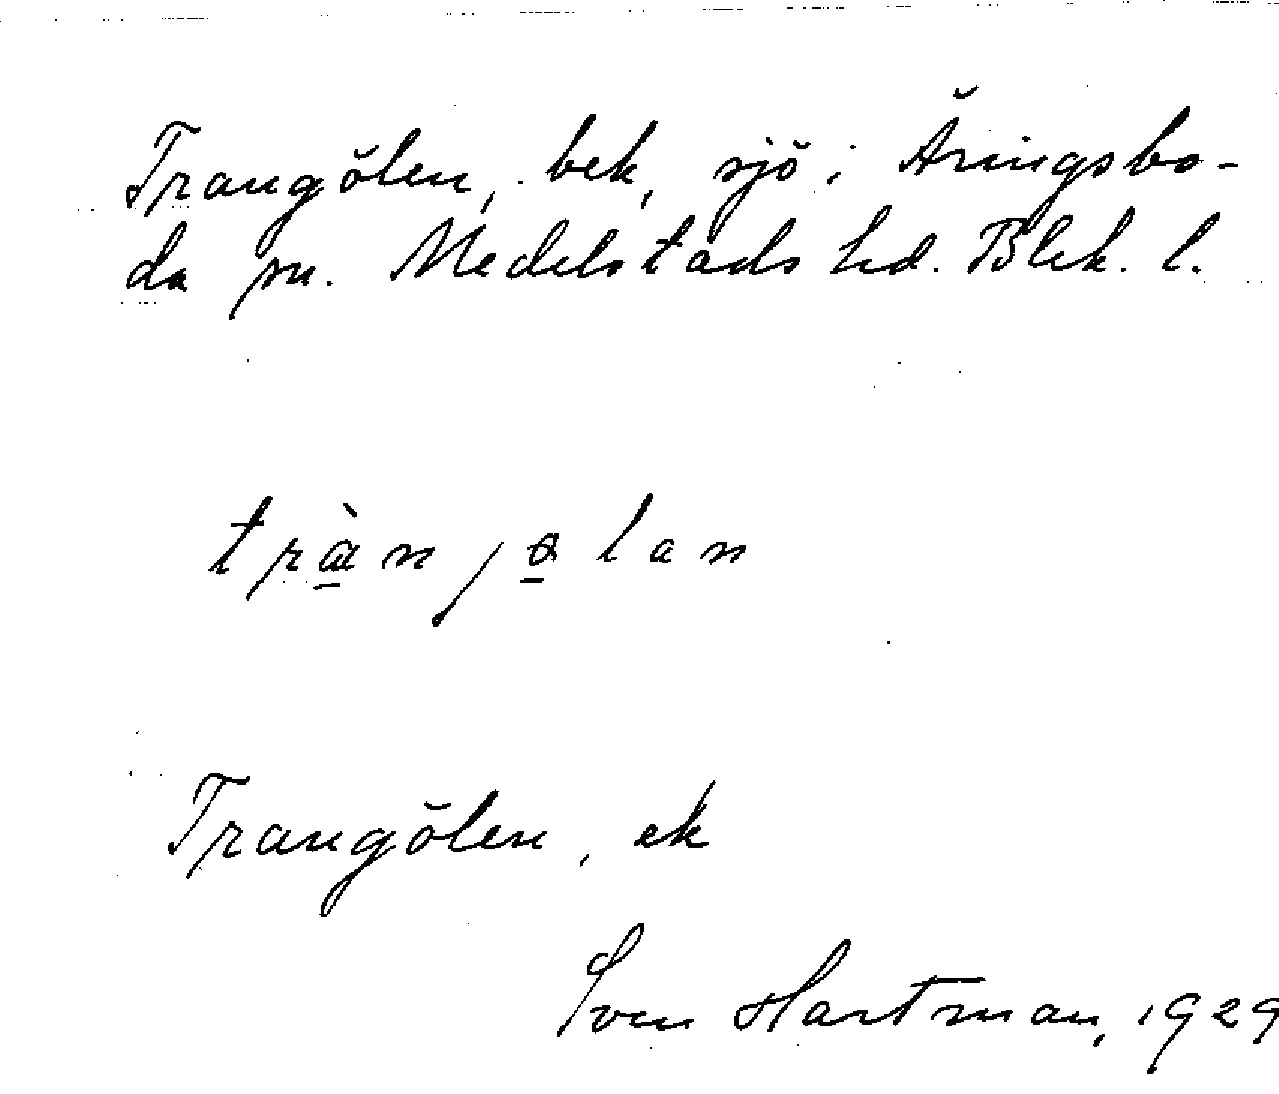 Trangölen, bek, sjö i Åringsbo-
da sn. Medelstads hd. Blek. l.
Trangölen, ek
Sven Hartman, 1929